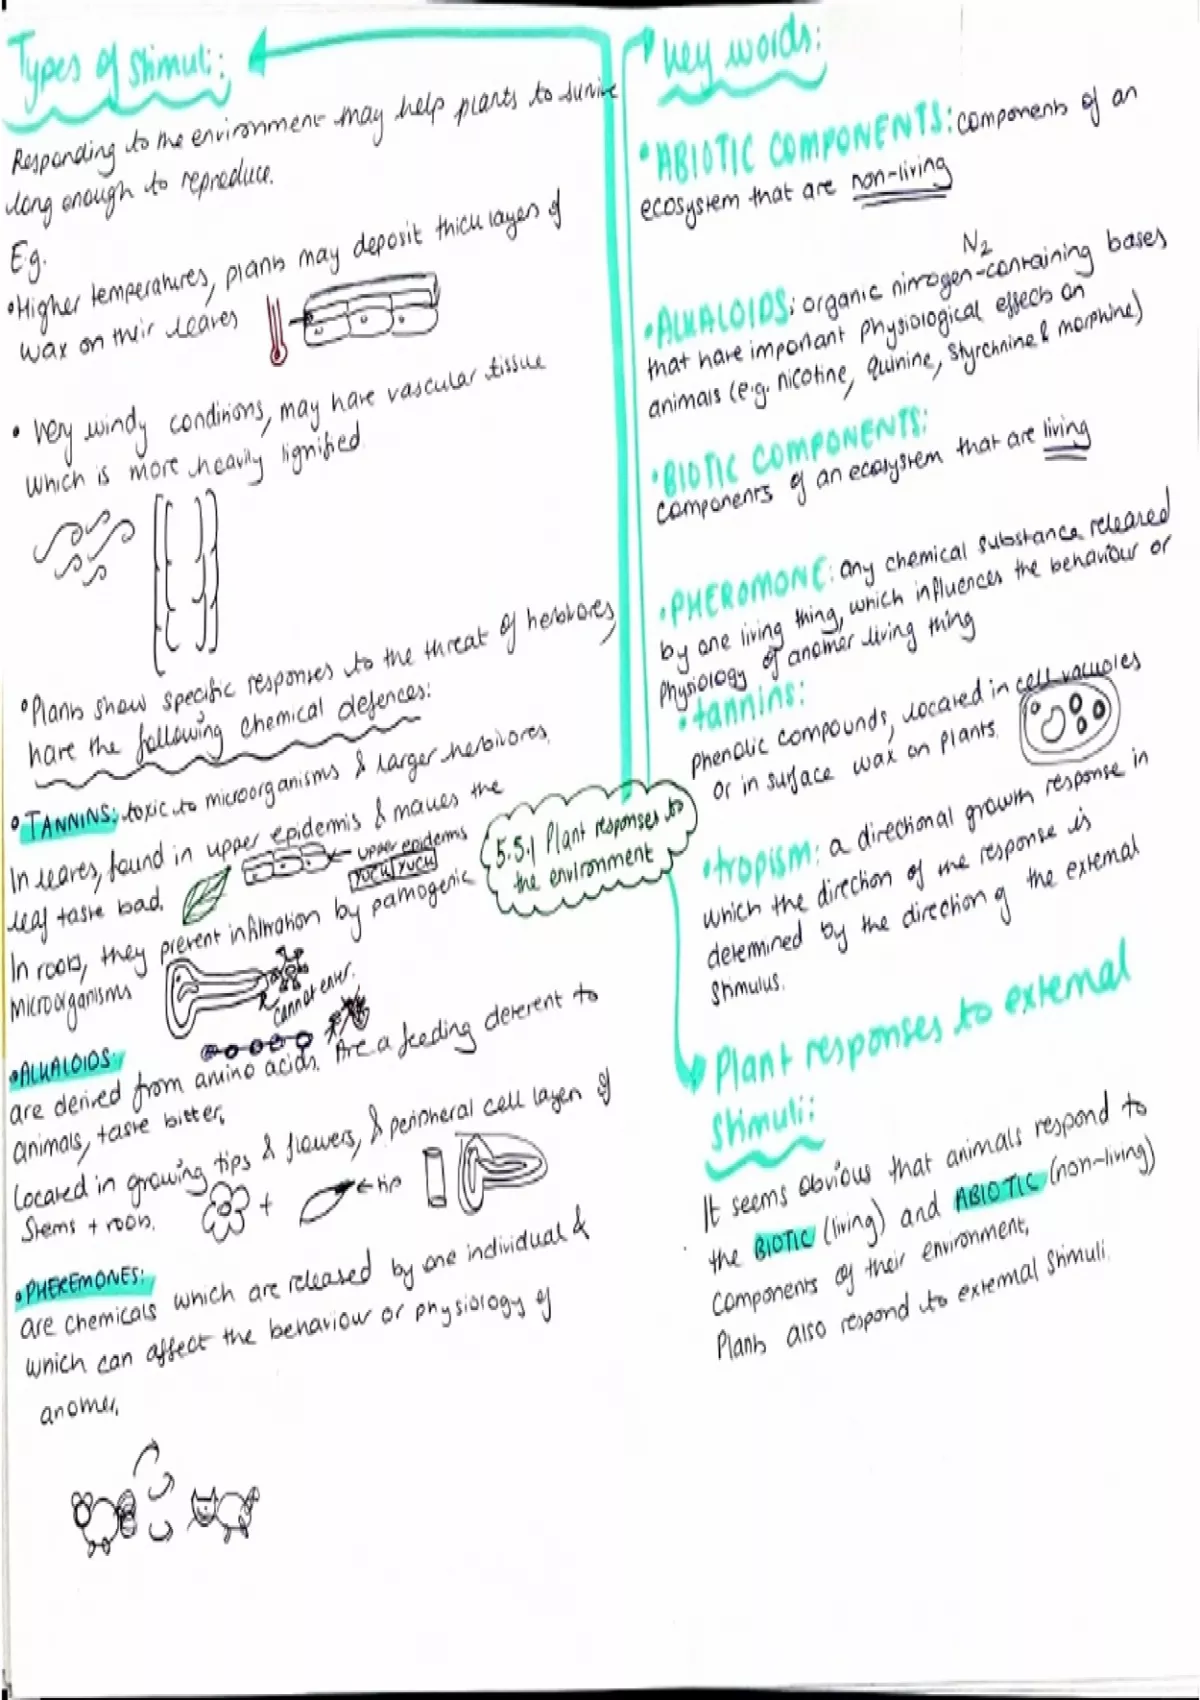 Types of Stimuli:
Responding to the environment may help plants to survive
long enough to reproduce.
E.g.
•Higher temperatures, plants may deposit thick layers of
wax on their leaves
• Very windy conditions, may have vascular tissue
which is more heavily lignified.
•Plants show specific responses to the threat of herbivores,
have the following chemical defences:
•TANNINS: toxic to microorganisms & larger herbivores.
In leaves, found in upper epidermis & makes the
leaf taste bad.
upper epidermis
YUCK YUCK
In roots, they prevent infiltration by pathogenic
microorganisms
cannot enter.
•ALKALOIDS:
are derived from amino acids. Are a feeding deterent to
animals, taste bitter,
Located in growing tips & flowers, & peripheral cell layers of
Stems + roots.
+
←tip
•PHEREMONES:
are chemicals which are released by one individual &
which can affect the behaviour or physiology of
another,
5.5.1 Plant responses to
the environment
key words:
•ABIOTIC COMPONENTS: components of an
ecosystem that are non-living
N2
•ALKALOIDS: organic nitrogen-containing bases
that have important physiological effects on
animals (e.g. nicotine, quinine, styrchnine & morphine)
•BIOTIC COMPONENTS:
components of an ecosystem that are living
•PHEROMONE: any chemical substance released
by one living thing, which influences the behaviour or
physiology of another living thing
•tannins:
phenolic compounds, located in cell vacuoles
or in surface wax on plants.
•tropism: a directional growth response in
which the direction of the response is
determined by the direction of the external
Stimulus.
Plant responses to external
Stimuli:
It seems obvious that animals respond to
the BIOTIC (living) and ABIOTIC (non-living)
components of their environment,
Plants also respond to external stimuli.